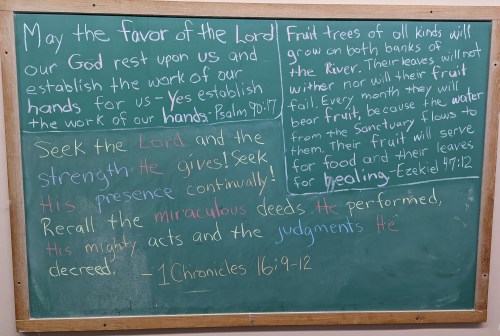 May the favor of the Lord
our God rest upon us and
establish the work of our
hands for us - Yes establish
the work of our hands - Psalm 90:17
Fruit trees of all kinds will
grow on both banks of
the River. Their leaves will not
wither nor will their fruit
fail. Every month they will
bear fruit, because the water
from the Sanctuary flows to
them. Their fruit will serve
for food and their leaves
for healing - Ezekiel 47:12
Seek the Lord and the
strength He gives! Seek
His presence continually!
Recall the miraculous deeds He performed,
His mighty acts and the judgments He
decreed. - 1 Chronicles 16:9-12